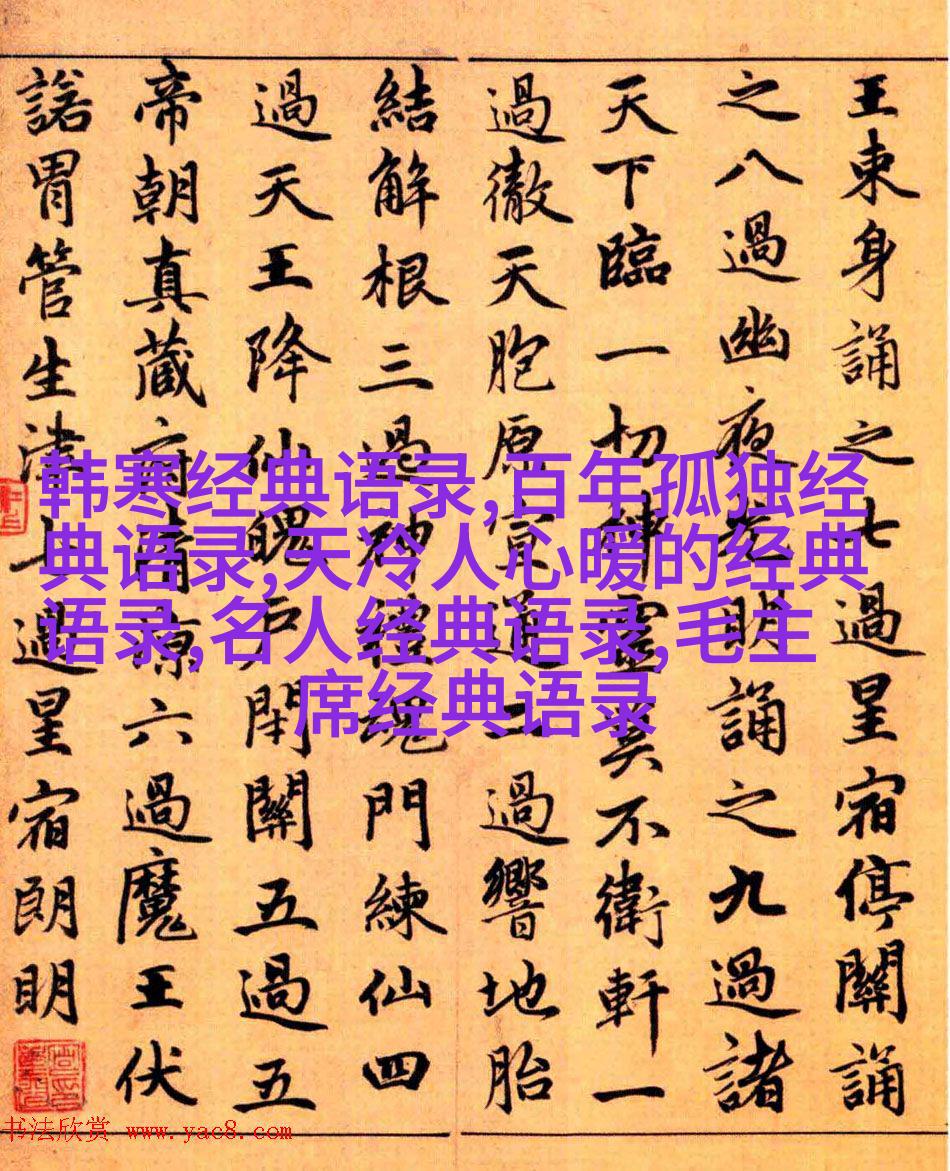 王束身誦之七過星宿停關誦
之八過幽夜光明誦之九過諸
天下臨一切神靈莫不衛軒一
過徹天胞原宣道二過響地胎
結解根三過神魂門練仙四
過天王降仙魄戶開關五過五
帝朝真藏府清涼六過魔王伏
諾胃管生津七過星宿朗明
韩寒经典语录,百年孤独经
典语录,天冷人心暖的经典
语录,名人经典语录,毛主
席经典语录
书法欣赏 www.yac8.com